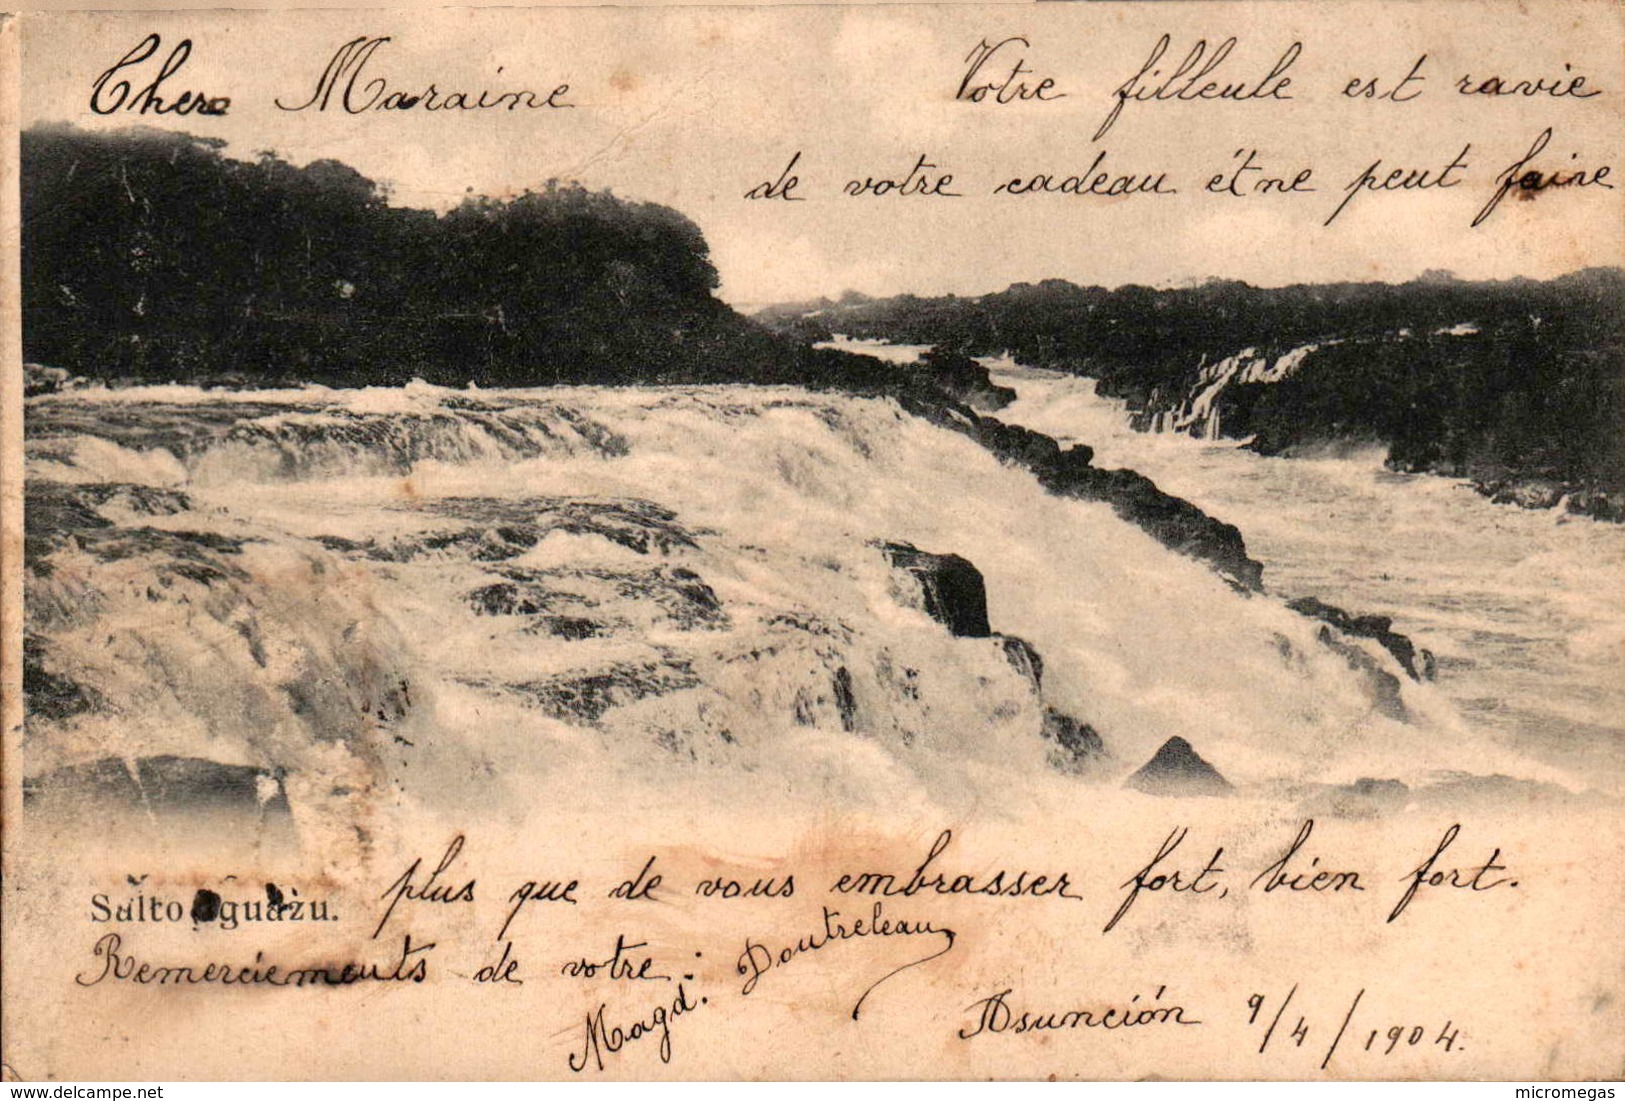 Chere Maraine
Votre filleule est ravie
de votre cadeau et ne peut faire
plus que de vous embrasser fort, bien fort.
Salto Iguazu.
Remerciements de votre:
Magd. Doutreleau
Asunción 9/4/1904.
Delcampe.net
micromegas